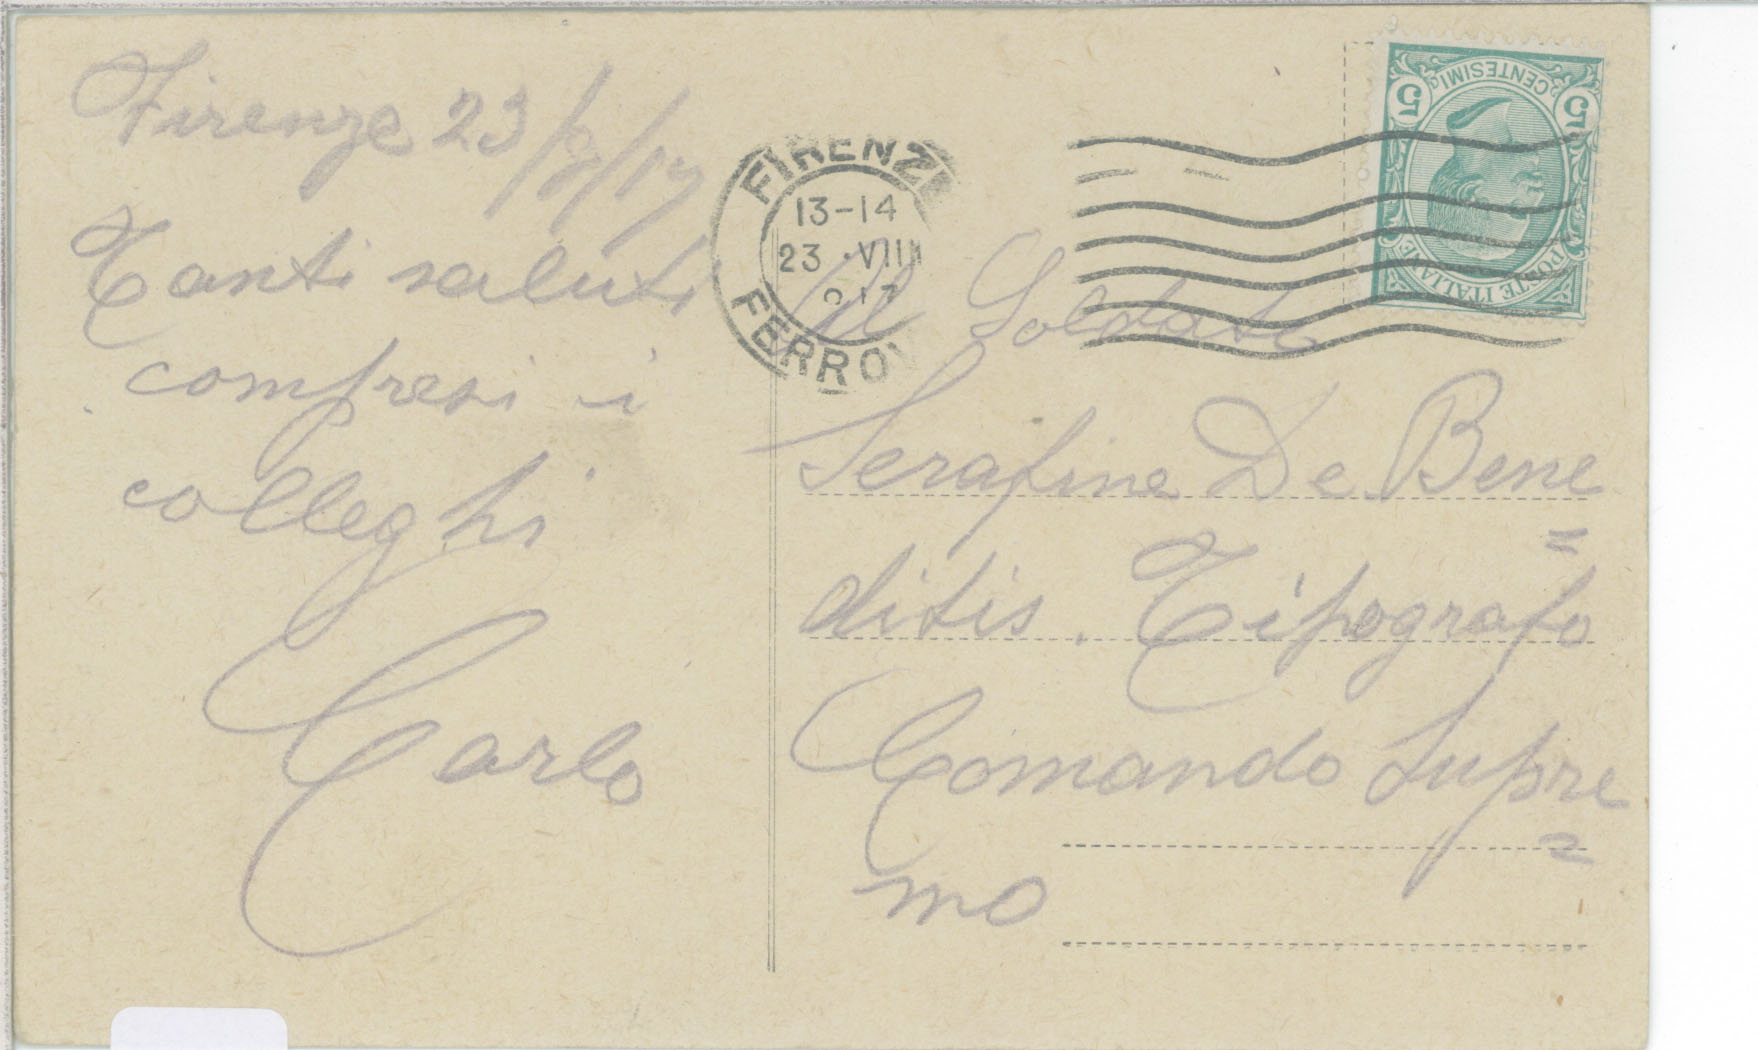 Firenze 23/8/17
Tanti saluti
compresi i
colleghi
Carlo
FIRENZE
13-14
23 · VIII
917
FERROV
5 CENTESIMI 5
POSTE ITALIANE
Al Soldato
Serafino De Bene
=
ditis. Tipografo
Comando Supre
=
mo